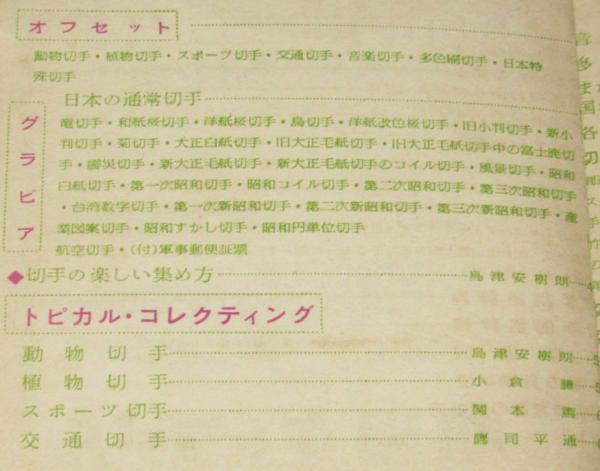 オフセット
動物切手・植物切手・スポーツ切手・交通切手・音楽切手・多色刷切手・日本特
殊切手
日本の通常切手
グラビア
竜切手・和紙桜切手・洋紙桜切手・鳥切手・洋紙改色桜切手・旧小判切手・新小
判切手・菊切手・大正白紙切手・旧大正毛紙切手・旧大正毛紙切手中の富士鹿切
手・震災切手・新大正毛紙切手・新大正毛紙切手のコイル切手・風景切手・昭和
白紙切手・第一次昭和切手・昭和コイル切手・第二次昭和切手・第三次昭和切手
・台湾数字切手・第一次新昭和切手・第二次新昭和切手・第三次新昭和切手・産
業図案切手・昭和すかし切手・昭和円単位切手
航空切手・(付)軍事郵便証票
◆切手の楽しい集め方 島津安樹朗
トピカル・コレクティング
動物切手 島津安樹朗
植物切手 小倉謙
スポーツ切手 関本篤
交通切手 鷹司平通
音
多
国
各
切